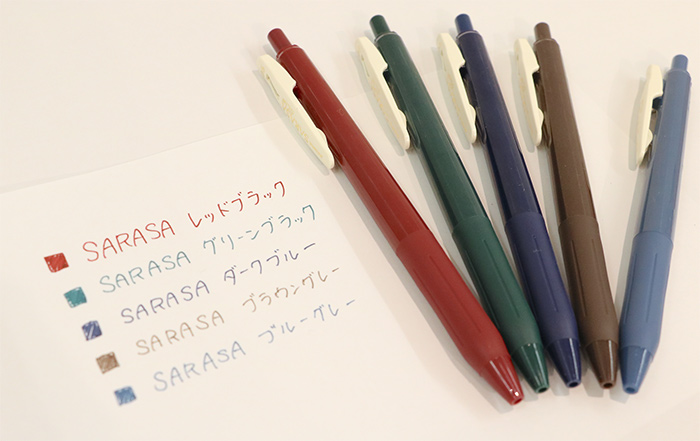 SARASA レッドブラック
SARASA グリーンブラック
SARASA ダークブルー
SARASA ブラウングレー
SARASA ブルーグレー